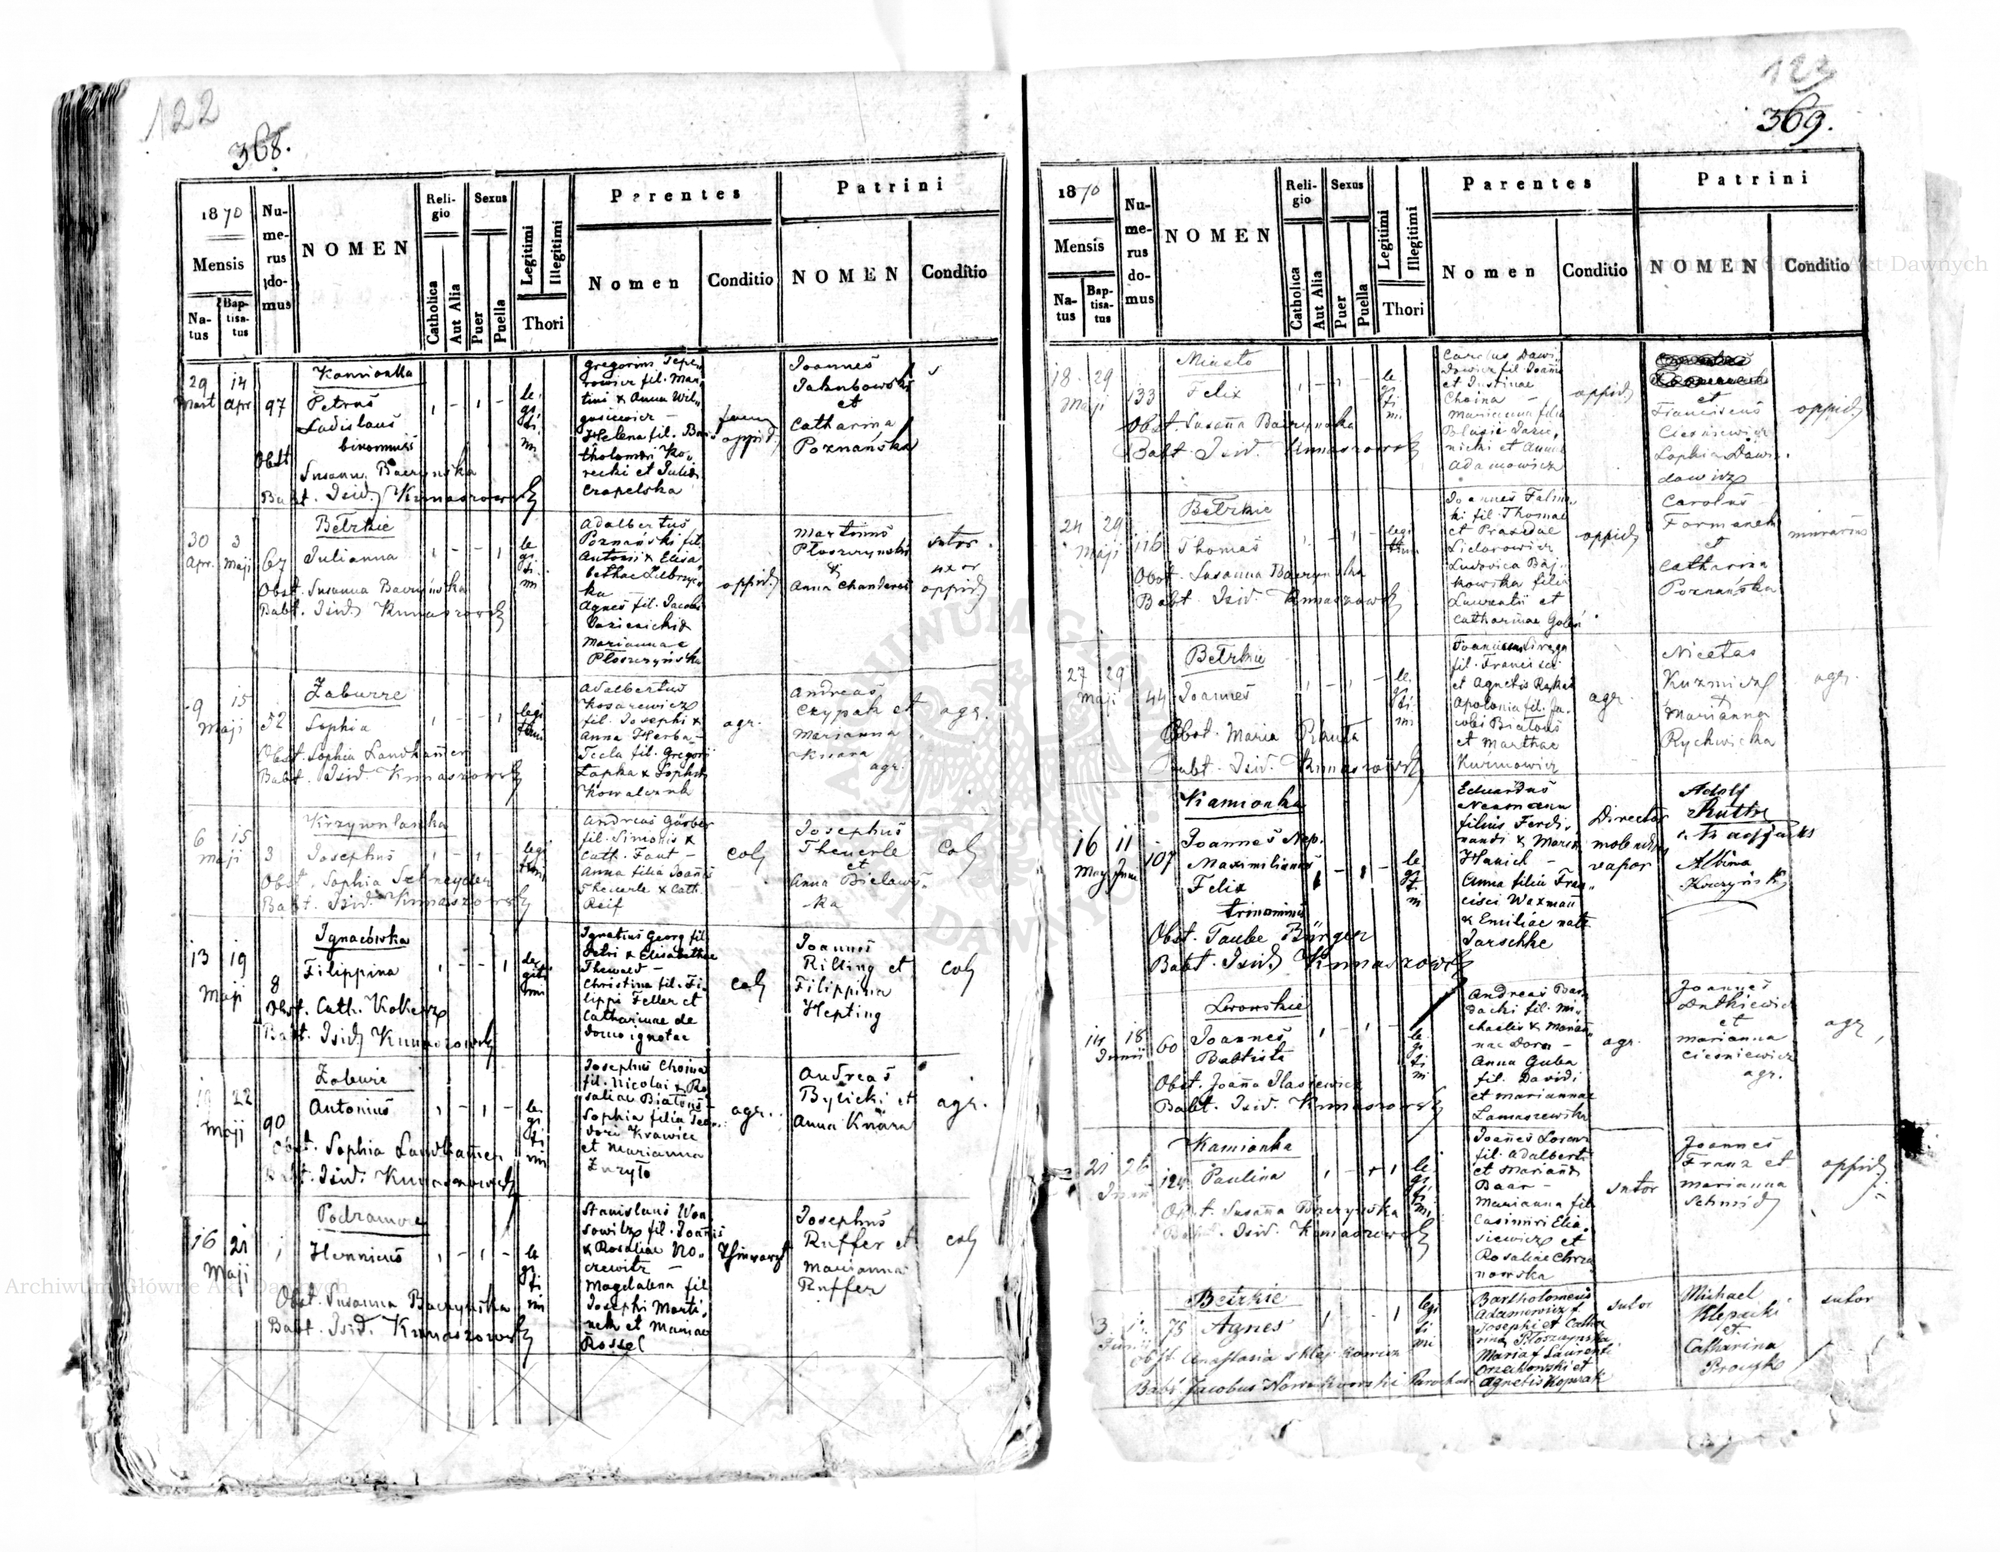 122
368.
1870
Mensis
Na-
tus
Bap-
tisa-
tus
Nu-
me-
rus
do-
mus
NOMEN
Reli-
gio
Catholica
Aut Alia
Sexus
Puer
Puella
Legitimi
Illegitimi
Thori
Parentes
Nomen
Conditio
Patrini
NOMEN
Conditio
29 14
Mart Apr
97
Kamionka
Petrus
Ladislaus
binominis
Obst
Susanna Baczyńska
Bapt. Isid. Kunaszowski
le
gi
ti
mi
Gregorius
rowicz fil. Mar
tini & Anna Wil
Helena fil. Bar
tholomei Ko
recki et Julia
Czapelska
oppid.
Joannes
Jakubowski
et
Catharina
Poznańska
30 3
Apr. Maji
67
Betzkie
Julianna
Obst. Susanna Baczyńska
Bapt. Isid. Kunaszowski
le
gi
ti
mi
Adalbertus
Poznański fil
Antonii & Elisa
bethae
ka —
Agnes fil. Jacobi
Mariannae
Płoszczyńska
oppid.
Martinus
Płoszczyński
&
Anna
sutor.
uxor
oppid.
9 15
Maji
52
Zaburze
Sophia
Obst. Sophia Landkamer
Bapt. Isid. Kunaszowski
legi
timi
Adalbertus
Kosarewicz
fil. Josephi &
Anna Herba —
Tecla fil. Gregori
Łapka & Sophia
Kowalczuk
agr.
Andreas
Czypak et
Marianna
Knara
agr.
agr.
6 15
Maji
3
Krzywulanka
Josephus
Obst. Sophia Schneyder
Bapt. Isid. Kunaszowski
legi
timi
Andreas Gärber
fil. Simonis &
Cath. Faut —
Anna filia Joannis
Theuerle & Cath.
Reif
col.
Josephus
Theuerle
et
Anna Bielaws-
ka
col.
13 19
Maji
8
Ignacówka
Filippina
Obst. Cath.
Bapt. Isid. Kunaszowski
le
giti
mi
Ignatius Georg fil
Petri & Elisabethae
Thewald —
Christina fil. Fi
lippi Feller et
Catharinae de
domo ignotae
col.
Joannes
Rilling et
Filippina
Hepting
col.
22
Maji
90
Zaburze
Antonius
Obst. Sophia Landkamer
Bapt. Isid. Kunaszowski
le
gi
ti
mi
Josephus Choina
fil. Nicolai & Ro
saliae Białous —
Sophia filia Teo
dori Krawiec
et Marianna
Zuryło
agr.
Andreas
Bylicki et
Anna Knara
agr.
16 21
Maji
1
Podzamcze
Henricus
Obst. Susanna Baczyńska
Bapt. Isid. Kunaszowski
le
gi
ti
mi
Stanislaus Won
sowicz fil. Joannis
& Rosaliae No-
crewitz —
Magdalena fil
Josephi Marti
nek et Mariae
Rossel
Josephus
Ruffer et
Marianna
Ruffer
col.
123
369.
1870
Mensis
Na-
tus
Bap-
tisa-
tus
Nu-
me-
rus
do-
mus
NOMEN
Reli-
gio
Catholica
Aut Alia
Sexus
Puer
Puella
Legitimi
Illegitimi
Thori
Parentes
Nomen
Conditio
Patrini
NOMEN
Conditio
18 29
Maji
133
Miasto
Felix
Obst. Susanna Baczyńska
Bapt. Isid. Kunaszowski
le
gi
ti
mi
Carolus Dawi
dowicz fil Joannis
et Justinae
Choina —
Marianna filia
Blasii
nicki et Anna
Adamowicz
oppid.
et
Franciscus
Cieśniewicz
Sophia Dawi-
dowicz
oppid.
24 29
Maji
116
Betzkie
Thomas
Obst. Susanna Baczyńska
Bapt. Isid. Kunaszowski
legi
timi
Joannes Falin
ki fil. Thomae
et Praxedae
Sidorowicz
Ludovica Baj
kowska filia
Laurentii et
Catharinae
oppid.
Carolus
Formanek
et
Catharina
Poznańska
murarius
27 29
Maji
44
Betzkie
Joannes
Obst. Maria
Bapt. Isid. Kunaszowski
le
gi
ti
mi
fil. Francisci
et Agnetis
Apolonia fil. Ja
cobi Białous
et Marthae
Kuźmowicz
agr.
Nicetas
Kuzmicz
&
Marianna
Rychwicka
agr.
16 11
May Juni
107
Kamionka
Joannes Nep.
Maximilianus
Felix
trinominis
Obst. Taube Bürger
Bapt. Isid. Kunaszowski
le
gi
ti
m
Eduardus
Neumann
filius Ferdi
nandi & Maria
Hanich —
Anna filia Fran
cisci Waxmann
& Emiliae nata
Jarschke
Director
molendini
vapor
Adolf
Albina
Korczyńska
14 18
Junii
60
Lwowskie
Joannes
Baptista
Obst. Joanna Ilasiewicz
Bapt. Isid. Kunaszowski
le
gi
ti
mi
Andreas Bar
dacki fil. Mi
chaelis & Marian
nae —
Anna Guba
fil. Davidi
et Mariannae
Łomaszewska
agr.
Joannes
et
Marianna
Cieśniewicz
agr.
agr.
21 26
Junii
124
Kamionka
Paulina
Obst. Susanna Baczyńska
Bapt. Isid. Kunaszowski
le
gi
ti
mi
Joannes Lorenz
fil. Adalberti
et Mariannae
Baar —
Marianna fil.
Casimiri Elia-
siewicz et
Rosaliae Chrza
nowska
sutor
Joannes
Franz et
Marianna
Schmid
oppid.
3
Junii
75
Betzkie
Agnes
Obst. Anastasia
Bapt. Jacobus Nowakowski Parochus
legi
ti
mi
Bartholomeus
Adamowicz f.
Josephi et Catha
rina Płoszczyńska
Maria f Laurenti
Orzechowski et
Agnetis Kopczak
sutor
Michael
Klepacki
et
Catharina
sutor
ARCHIWUM GŁÓWNE AKT DAWNYCH
Archiwum Główne Akt Dawnych
Archiwum Główne Akt Dawnych